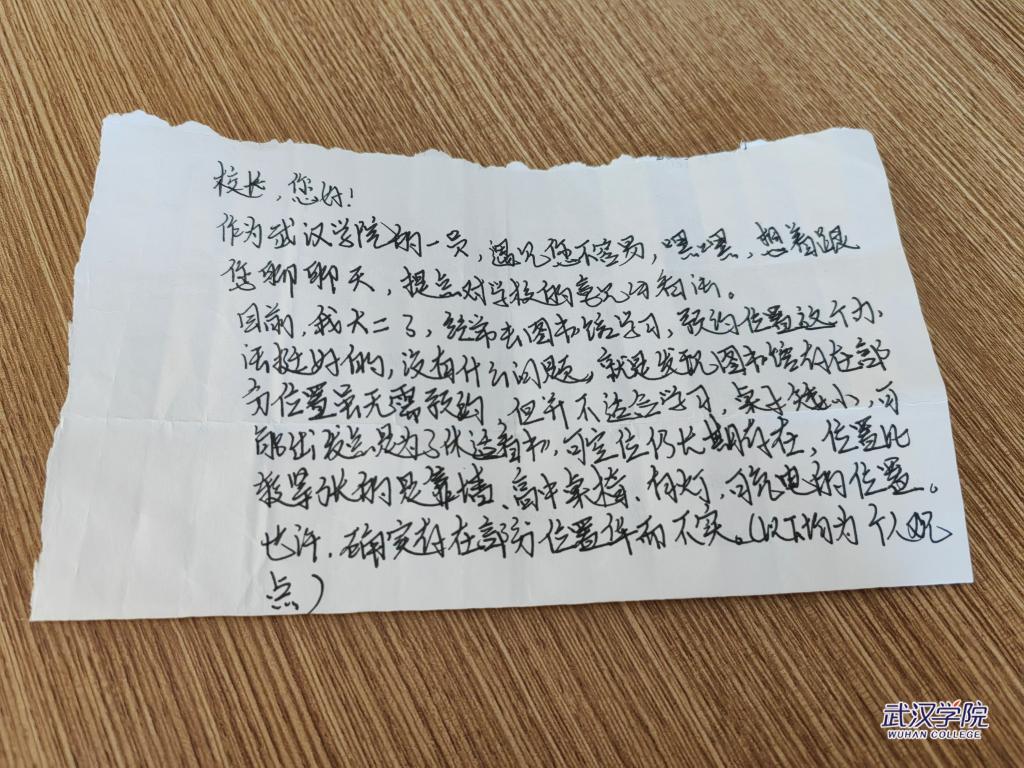 校长，您好！
作为武汉学院的一员，遇见您不容易，嘿嘿，想着跟
您聊聊天，提点对学校的意见与看法。
目前，我大二了，经常去图书馆学习，预约位置这个办
法挺好的，没有什么问题，就是发现图书馆存在部
分位置虽无需预约 但并不适合学习，桌子矮小，可
能出发点是为了休适看书，可空位仍长期存在，位置比
较紧张的是靠墙、高中桌椅、有灯、可充电的位置。
也许，确实存在部分位置华而不实。（以上均为个人观
点）
武汉学院
WUHAN COLLEGE